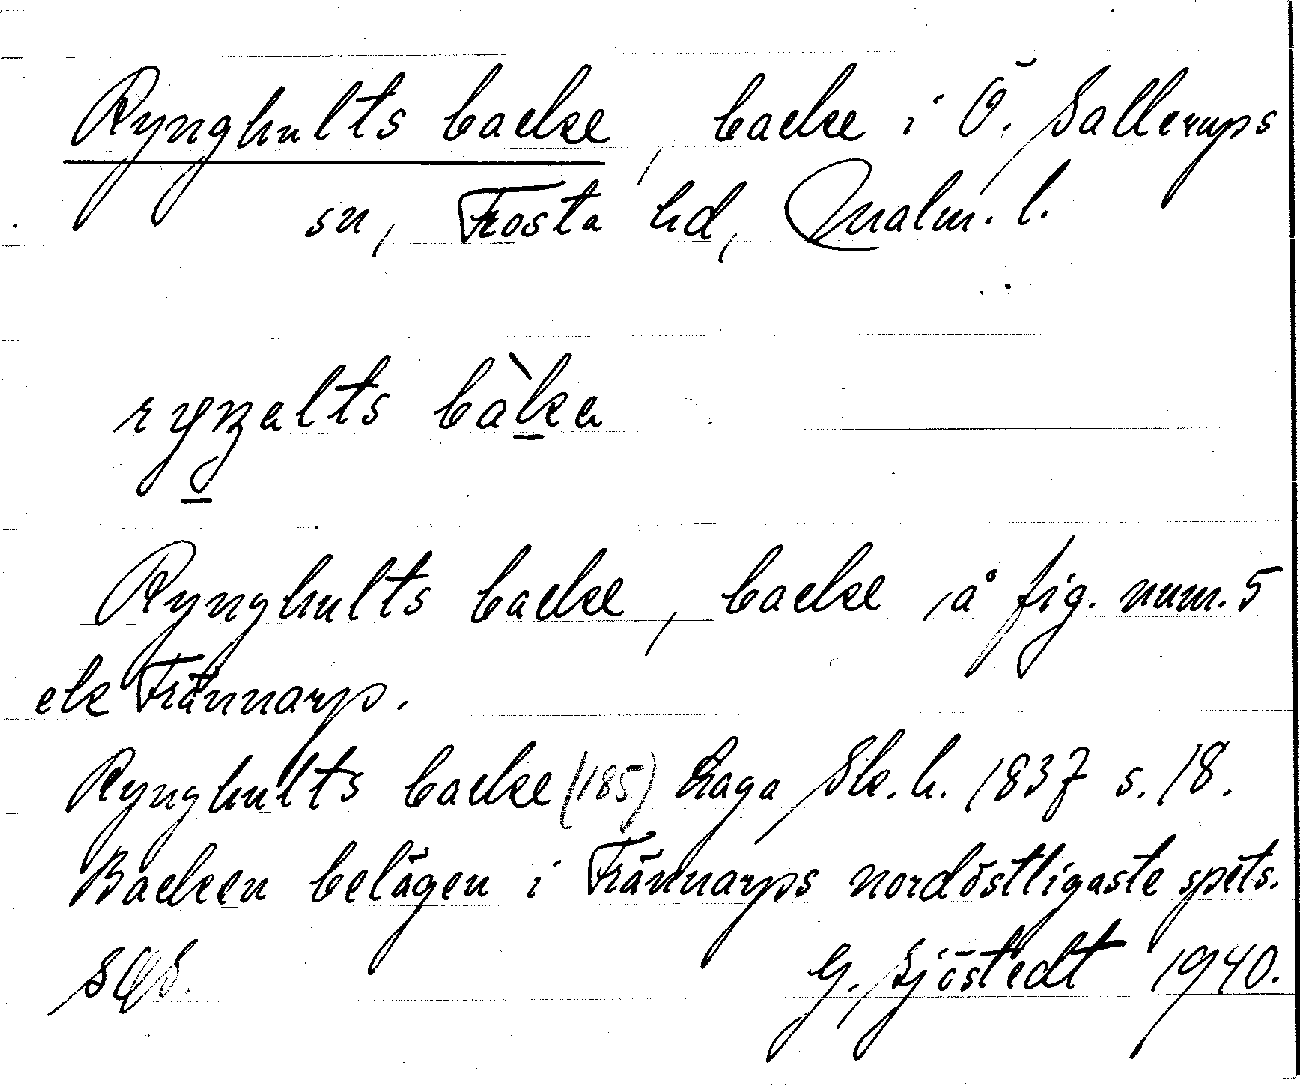 Rynghults backe, backe i Ö. Sallerups
sn, Frosta hd, Malm. l.
ryŋalts bàka
Rynghults backe, backe å fig. num. 5
ek Frännarp.
Rynghults backe (185) Laga Sk. h. 1837 s. 18.
Backen belägen i Frännarps nordöstligaste spets.
G. Sjöstedt 1940.